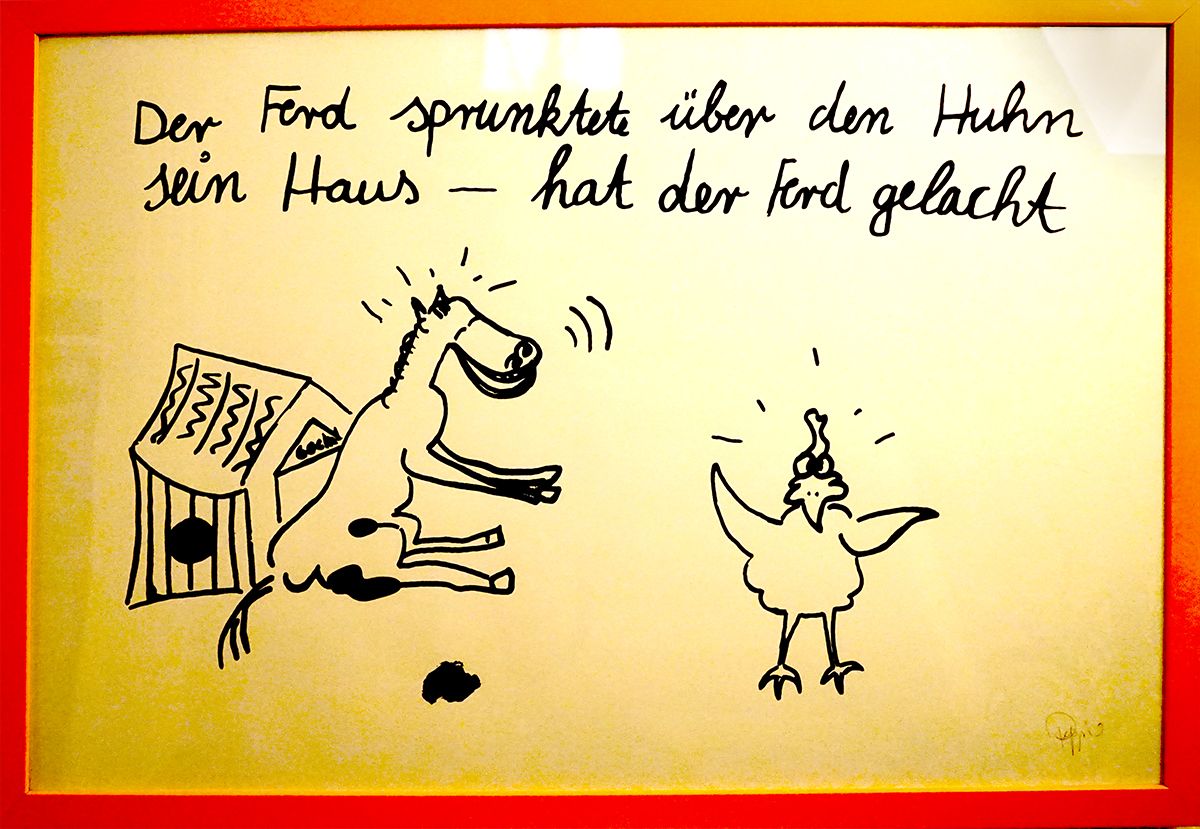 Der Ferd sprunktete über den Huhn
sein Haus — hat der Ferd gelacht